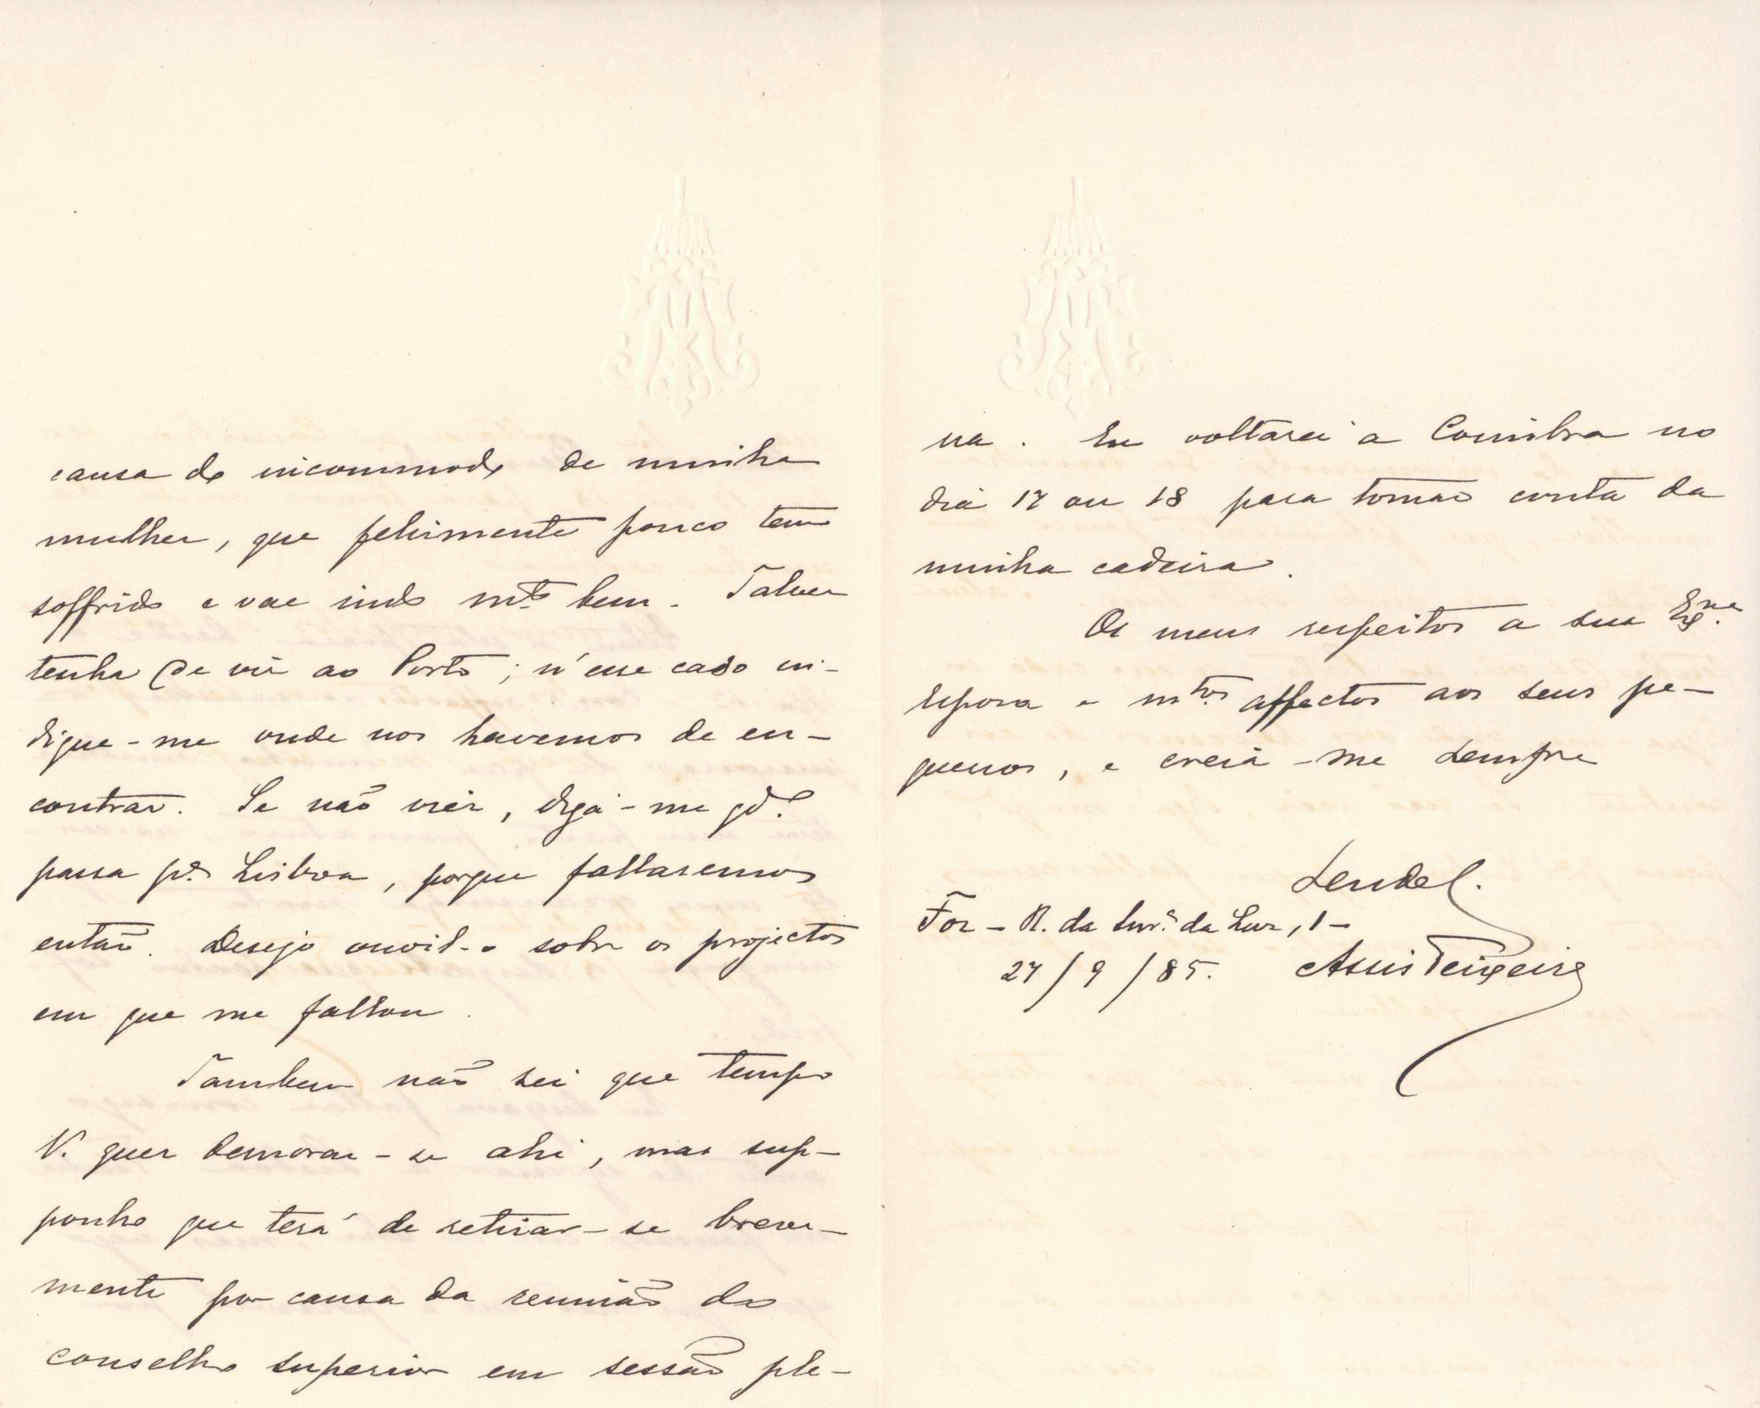 causa do incommodo de minha
mulher, que felizmente pouco tem
soffrido e vae indo mto bem. Talvez
tenha de vir ao Porto; n'esse caso in-
digue-me onde nos havemos de en-
contrar. Se não vier, diga-me qdo
passa pa Lisboa, porque fallaremos
então. Desejo ouvil-o sobre os projectos
em que me fallou.
Tambem não sei que tempo
V. quer demorar-se ahi, mas sup-
ponho que terá de retirar-se breve-
mente por causa da reunião do
conselho superior em sessão ple-
na. Eu voltarei a Coimbra no
dia 17 ou 18 para tomar conta da
minha cadeira.
Os meus respeitos a sua Exma.
esposa e mtos affectos aos seus pe-
quenos, e creia-me sempre
Foz - R. da Snra da Luz, 1 -
27/9/85. Assis Teixeira